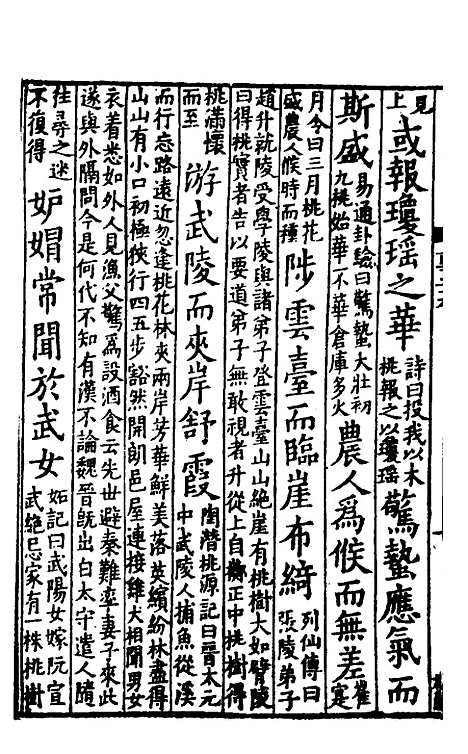 見上或報瓊瑤之華詩曰投我以木桃報之以瓊瑤驚蟄應氣而
斯盛易通卦驗曰驚蟄大壯初九桃始華不華倉庫多火農人爲候而無差崔寔
月令曰三月桃花盛農人候時而種陟雲臺而臨崖布綺列仙傳曰張陵弟子
趙升就陵受學陵與諸弟子登雲臺山山絕崖有桃樹大如臂陵
曰得桃實者告以要道弟子無敢視者升從上自擲正中桃樹得
桃滿懷而至游武陵而夾岸舒霞陶潛桃源記曰晉太元中武陵人捕魚從溪
而行忘路遠近忽逢桃花林夾兩岸芳華鮮美落英繽紛林盡得
山山有小口初極狹行四五步豁然開朗邑屋連接雞犬相聞男女
衣着悉如外人見漁父驚爲設酒食云先世避秦難率妻子來此
遂與外隔問今是何代不知有漢不論魏晉旣出白太守遣人隨
往尋之迷不復得妒媢常聞於武女妬記曰武陽女嫁阮宣武絕忌家有一株桃樹